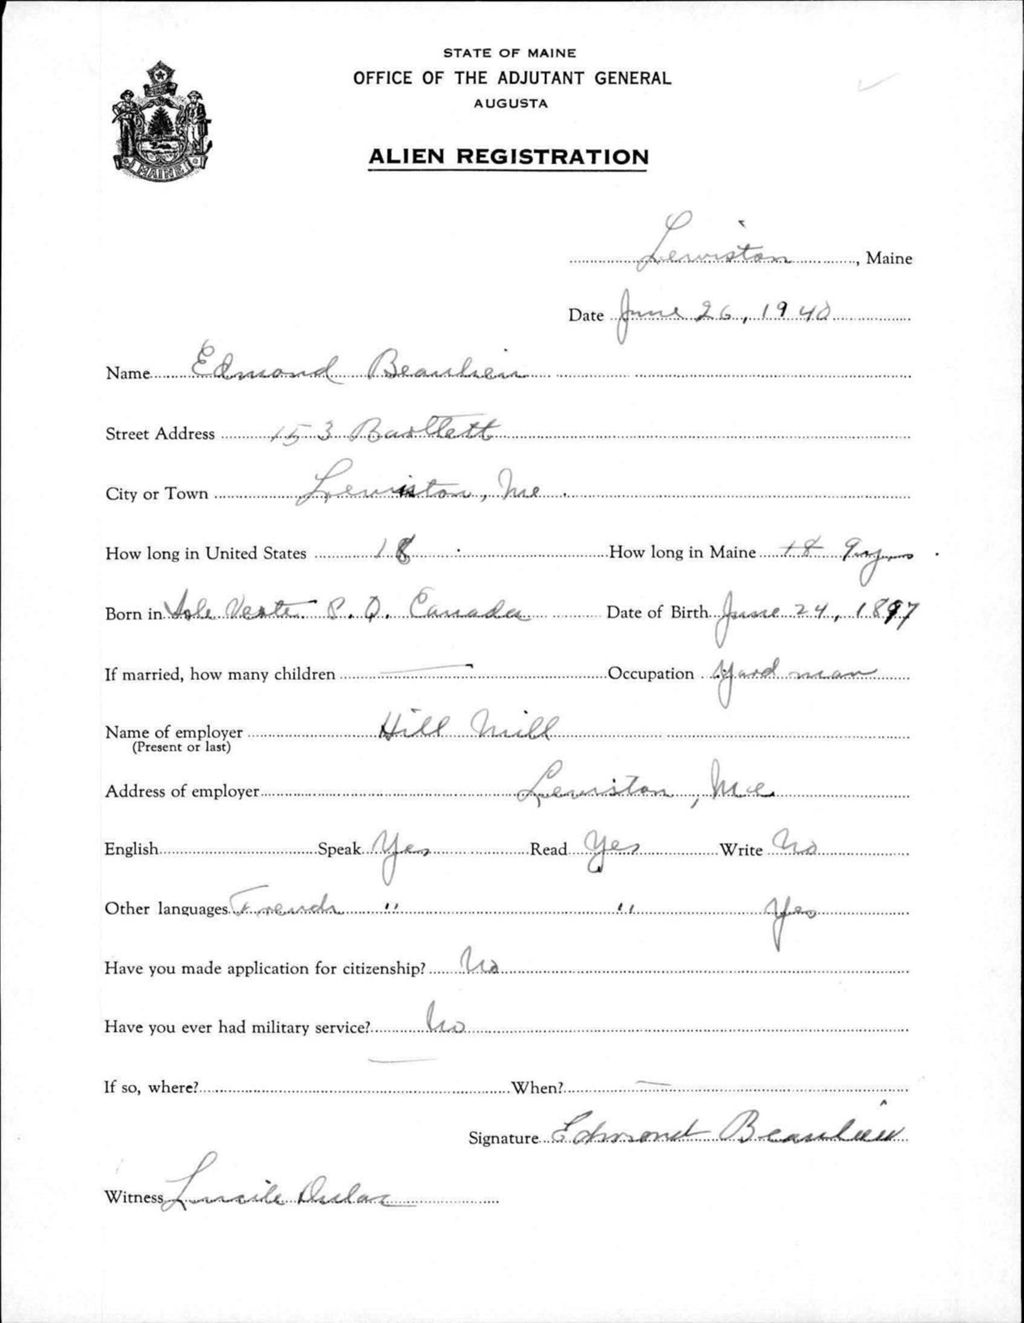 STATE OF MAINE
OFFICE OF THE ADJUTANT GENERAL
AUGUSTA
ALIEN REGISTRATION
MAINE
Lewiston, Maine
Date June 26, 1940
Name Edmond Beaulieu
Street Address 153 Bartlett
City or Town Lewiston, Me.
How long in United States 18 How long in Maine 18 yrs
Born in Isle Verte P. Q. Canada Date of Birth June 24, 1897
If married, how many children — Occupation Yard man
Name of employer Hill Mill
(Present or last)
Address of employer Lewiston, Me.
English Speak Yes Read Yes Write No
Other languages French " " Yes
Have you made application for citizenship? No
Have you ever had military service? No
If so, where? — When? —
Signature Edmond Beaulieu
Witness Lucile Dulac